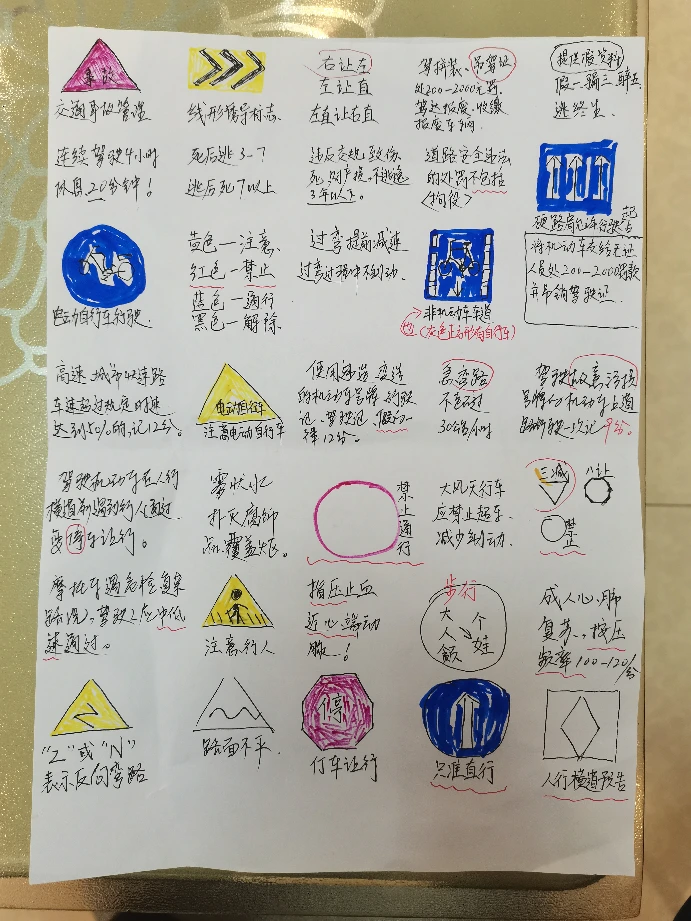 事故
交通事故管理
线形诱导标志
右让左
左让直
左直让右直
驾拼装、吊驾证
处200-2000元罚
驾达报废,收缴
报废车辆
提供假资料
假一骗三醉五
逃终生
连续驾驶4小时
休息20分钟!
死后逃3-7
逃后死7以上
违反交规致伤
死,财产损,不逃逸
3年以下。
道路安全违法
的处罚不包括
<拘役>
硬路肩允许行驶起点
电动自行车行驶.
黄色一注意.
红色一禁止
蓝色一通行
黑色一解除
过弯提前减速
过弯过程中不制动.
非机动车车道
(灰色正方形有自行车)
将机动车交给无证
人员处200-2000罚款
并吊销驾驶证.
高速 城市快速路
车速超过规定时速
达到50%的,记12分.
电动自行车
注意电动自行车
使用伪造变造
的机动车号牌、行驶
证、驾驶证,一
律12分.
急弯路
不超过
30公里/小时
驾驶故意污损
号牌的机动车上道
路行驶一次记9分.
驾驶机动车在人行
横道前遇到行人通过
要停车让行。
雾状水
扑灭腐蚀
品,覆盖火区。
禁止通行
大风天行车
应禁止超车
减少制动.
三减
八让
禁止
摩托车遇危险复杂
路况,驾驶人应冲低
速通过。
注意行人
指压止血
近心端动
脉一!
步行
大人领
个娃
成人心.肺
复苏.,按压
频率100-120/分
"Z"或"N"
表示反向弯路
路面不平.
停
停车让行
只准直行
人行横道预告